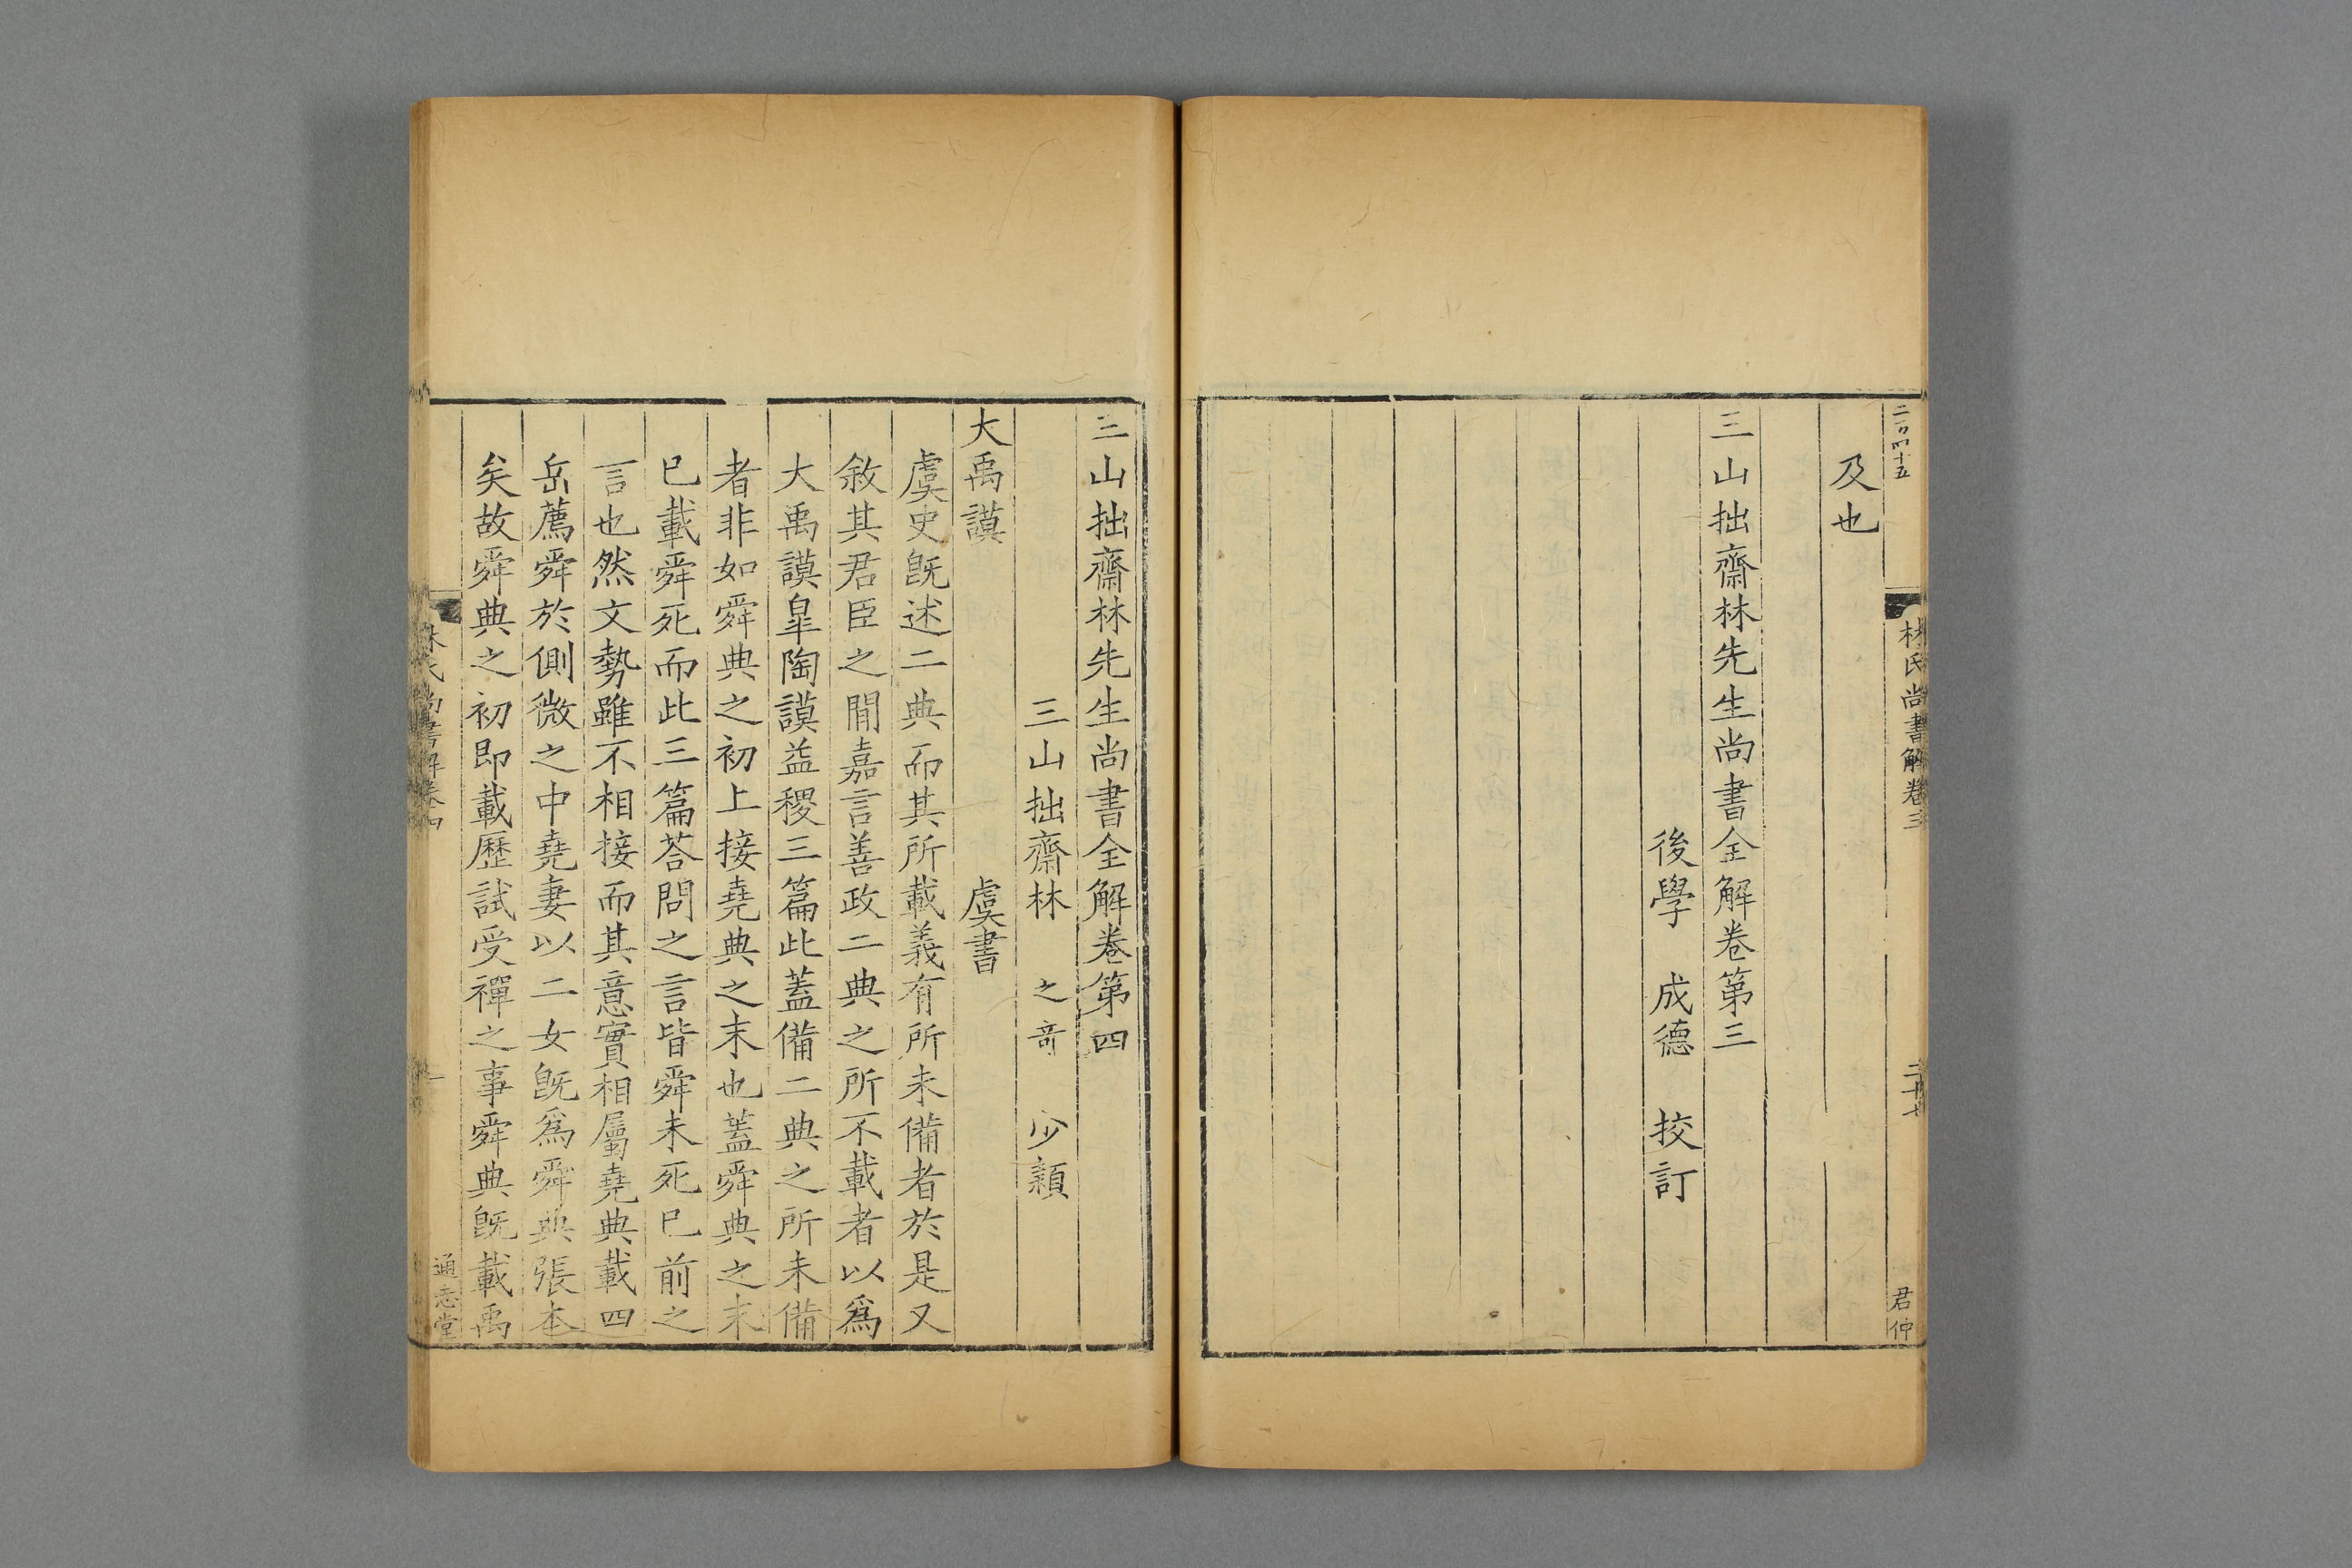 二百四十五
林氏尚書解卷三
二十七
君仲
及也
三山拙齋林先生尚書全解卷第三
後學 成德 挍訂
三山拙齋林先生尚書全解卷第四
三山拙齋林 之竒 少穎
大禹謨 虞書
虞史旣述二典而其所載義有所未備者於是又
敘其君臣之閒嘉言善政二典之所不載者以爲
大禹謨皐陶謨益稷三篇此蓋備二典之所未備
者非如舜典之初上接堯典之末也蓋舜典之末
已載舜死而此三篇荅問之言皆舜未死已前之
言也然文勢雖不相接而其意實相屬堯典載四
岳薦舜於側微之中堯妻以二女旣爲舜典張本
矣故舜典之初即載歷試受禪之事舜典旣載禹
林氏尚書解卷四
一
通志堂